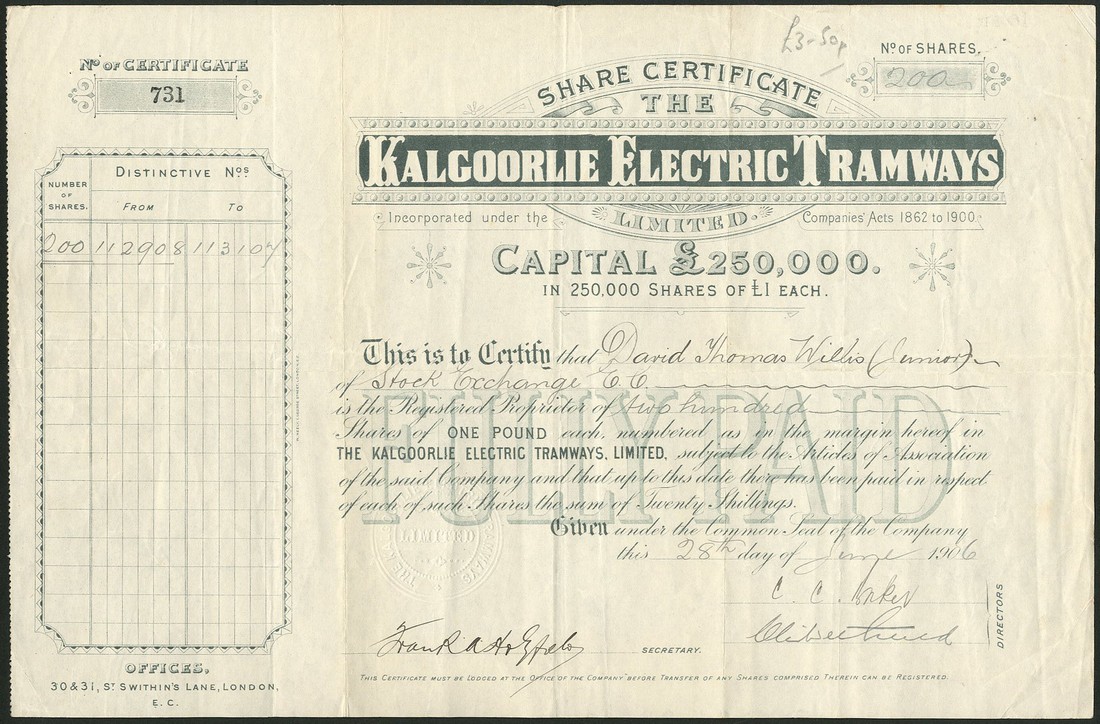 £3-50p
Nº OF CERTIFICATE
731
Nº OF SHARES.
200
SHARE CERTIFICATE
THE
KALGOORLIE ELECTRIC TRAMWAYS
LIMITED.
Incorporated under the Companies' Acts 1862 to 1900.
CAPITAL £250,000.
IN 250,000 SHARES OF £1 EACH.
DISTINCTIVE Nºs
NUMBER
OF
SHARES.
FROM TO
200 112908 113107
This is to Certify that David Thomas Willis (Junior)
of Stock Exchange E.C.
is the Registered Proprietor of two hundred
Shares of ONE POUND each, numbered as in the margin hereof in
THE KALGOORLIE ELECTRIC TRAMWAYS, LIMITED, subject to the Articles of Association
of the said Company and that up to this date there has been paid in respect
of each of such Shares the sum of Twenty Shillings.
FULLY PAID
Given under the Common Seal of the Company
this 28th day of June 1906
LIMITED
TRAMWAYS
C. C.
DIRECTORS
Frank A
SECRETARY.
THIS CERTIFICATE MUST BE LODGED AT THE OFFICE OF THE COMPANY BEFORE TRANSFER OF ANY SHARES COMPRISED THEREIN CAN BE REGISTERED.
OFFICES,
30 & 31, ST SWITHIN'S LANE, LONDON,
E.C.